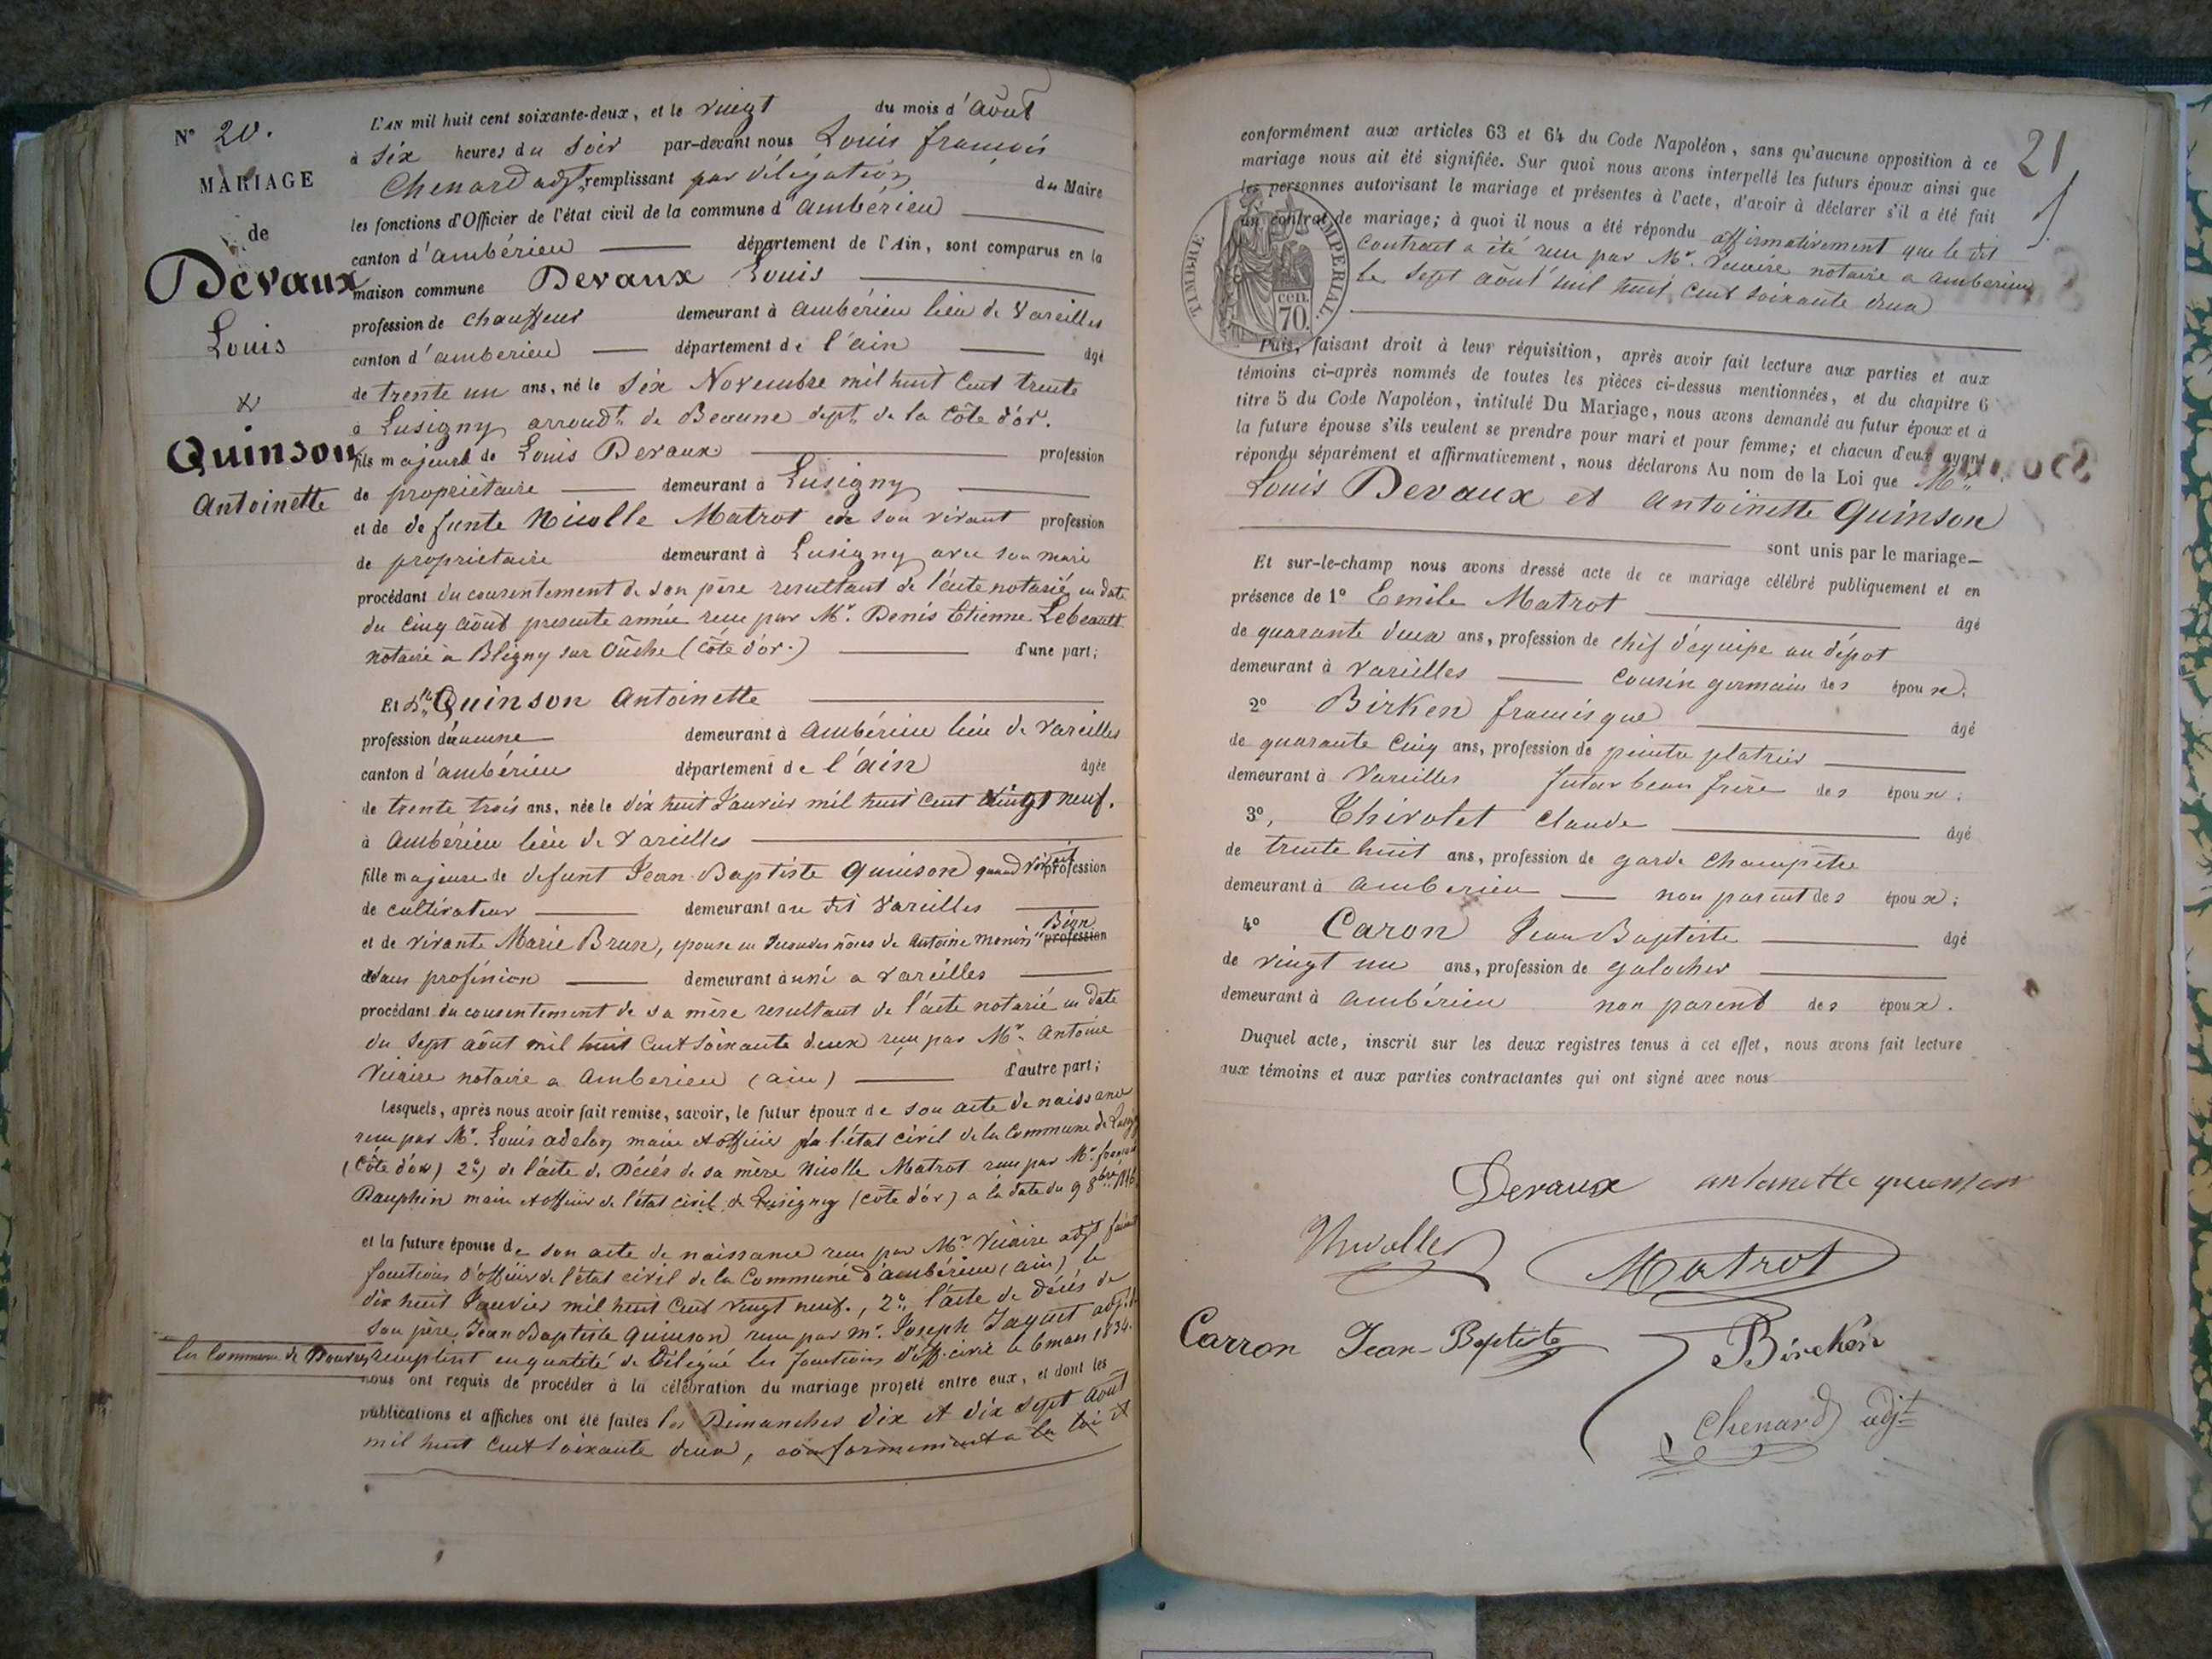 N° 20.
MARIAGE
de
Devaux
Louis
&
Quinson
Antoinette
L'AN mil huit cent soixante-deux, et le vingt du mois d'août
à six heures du soir par-devant nous Louis françois
Chenard adjt, remplissant par délégation du Maire
les fonctions d'Officier de l'état civil de la commune d'ambérieu
canton d'ambérieu département de l'Ain, sont comparus en la
maison commune Devaux Louis
profession de chauffeur demeurant à ambérieu lieu de Vareilles
canton d'amberieu département de l'ain âgé
de trente un ans, né le six Novembre mil huit cent trente
à Lusigny arrondt de Beaune dept de la Côte d'or.
fils majeur de Louis Devaux profession
de propriétaire demeurant à Lusigny
et de defunte Nicolle Matrot en son vivant profession
de propriétaire demeurant à Lusigny avec son mari
procédant du consentement de son père resultant de l'acte notarié en date
du cinq août presente année reçu par Mr. Denis Etienne Lebeault
notaire à Bligny sur Oûche (Côte d'or.) d'une part;
Et Dlle Quinson Antoinette
profession d'aucune demeurant à ambérieu lieu de Vareilles
canton d'ambérieu département de l'ain âgée
de trente trois ans, née le dix huit Janvier mil huit cent vingt neuf.
à ambérieu lieu de Vareilles
fille majeure de defunt Jean-Baptiste Quinson quand vivait profession
de cultivateur demeurant au dit Vareilles
et de vivante Marie Brun, epouse en secondes nôces de Antoine Monin profession
sans profession demeurant aussi a Vareilles
procédant du consentement de sa mère resultant de l'acte notarié en date
du sept août mil huit cent soixante deux reçu par Mr. Antoine
Vicaire notaire a amberieu (ain) d'autre part;
Lesquels, après nous avoir fait remise, savoir, le futur époux de son acte de naissance
reçu par Mr. Louis adelon maire et officier de l'état civil de la Commune de
(Côte d'or) 2° de l'acte de Décés de sa mère Nicolle Matrot reçu par Mr.
Dauphin maire et officier de l'état civil de Lusigny (côte d'or) a la date du 9 8bre
et la future épouse de son acte de naissance reçu par Mr Vicaire adjt
fonctions d'officier de l'état civil de la Commune d'ambérieu (ain), le
dix huit Janvier mil huit cent vingt neuf., 2° l'acte de décés de
son père Jean Baptiste Quinson reçu par mr. Joseph Jaquet adjt
la Commune de Douvres remplisst en qualité de Délégué les fonctions d'off. civil le 6 mars 1834.
nous ont requis de procéder à la célébration du mariage projeté entre eux, et dont les
publications et affiches ont été faites les Dimanches dix et dix sept août
mil huit cent soixante deux, conformement a la loi et
21
conformément aux articles 63 et 64 du Code Napoléon, sans qu'aucune opposition à ce
mariage nous ait été signifiée. Sur quoi nous avons interpellé les futurs époux ainsi que
les personnes autorisant le mariage et présentes à l'acte, d'avoir à déclarer s'il a été fait
un contrat de mariage; à quoi il nous a été répondu affirmativement que le dit
Contract a été reçu par Mr. Vicaire notaire a amberieu
le sept août mil huit cent soixante deux
TIMBRE IMPERIAL
70. cen.
Puis, faisant droit à leur réquisition, après avoir fait lecture aux parties et aux
témoins ci-après nommés de toutes les pièces ci-dessus mentionnées, et du chapitre 6
titre 5 du Code Napoléon, intitulé Du Mariage, nous avons demandé au futur époux et à
la future épouse s'ils veulent se prendre pour mari et pour femme; et chacun d'eux ayant
répondu séparément et affirmativement, nous déclarons Au nom de la Loi que Mr.
Louis Devaux et Antoinette Quinson
sont unis par le mariage
Et sur-le-champ nous avons dressé acte de ce mariage célébré publiquement et en
présence de 1° Emile Matrot âgé
de quarante deux ans, profession de chef d'équipe au dépot
demeurant à Vareilles cousin germain des époux.
2° Birken francisque âgé
de quarante cinq ans, profession de peintre platrier
demeurant à Vareilles futur beau frère des époux;
3°, Thivolet Claude âgé
de trente huit ans, profession de garde champêtre
demeurant à amberieu non parent des époux;
4° Caron Jean Baptiste âgé
de vingt un ans, profession de galocher
demeurant à ambérieu non parent des époux.
Duquel acte, inscrit sur les deux registres tenus à cet effet, nous avons fait lecture
aux témoins et aux parties contractantes qui ont signé avec nous
Devaux antoinette quinson
Matrot
Carron Jean-Baptiste Bircken
Chenard adjt